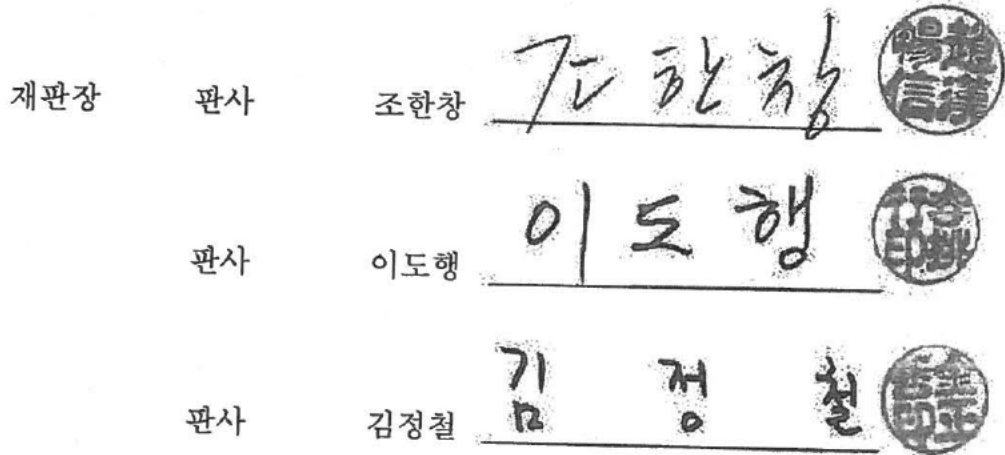 재판장 판사 조한창 조한창
판사 이도행 이도행
판사 김정철 김정철